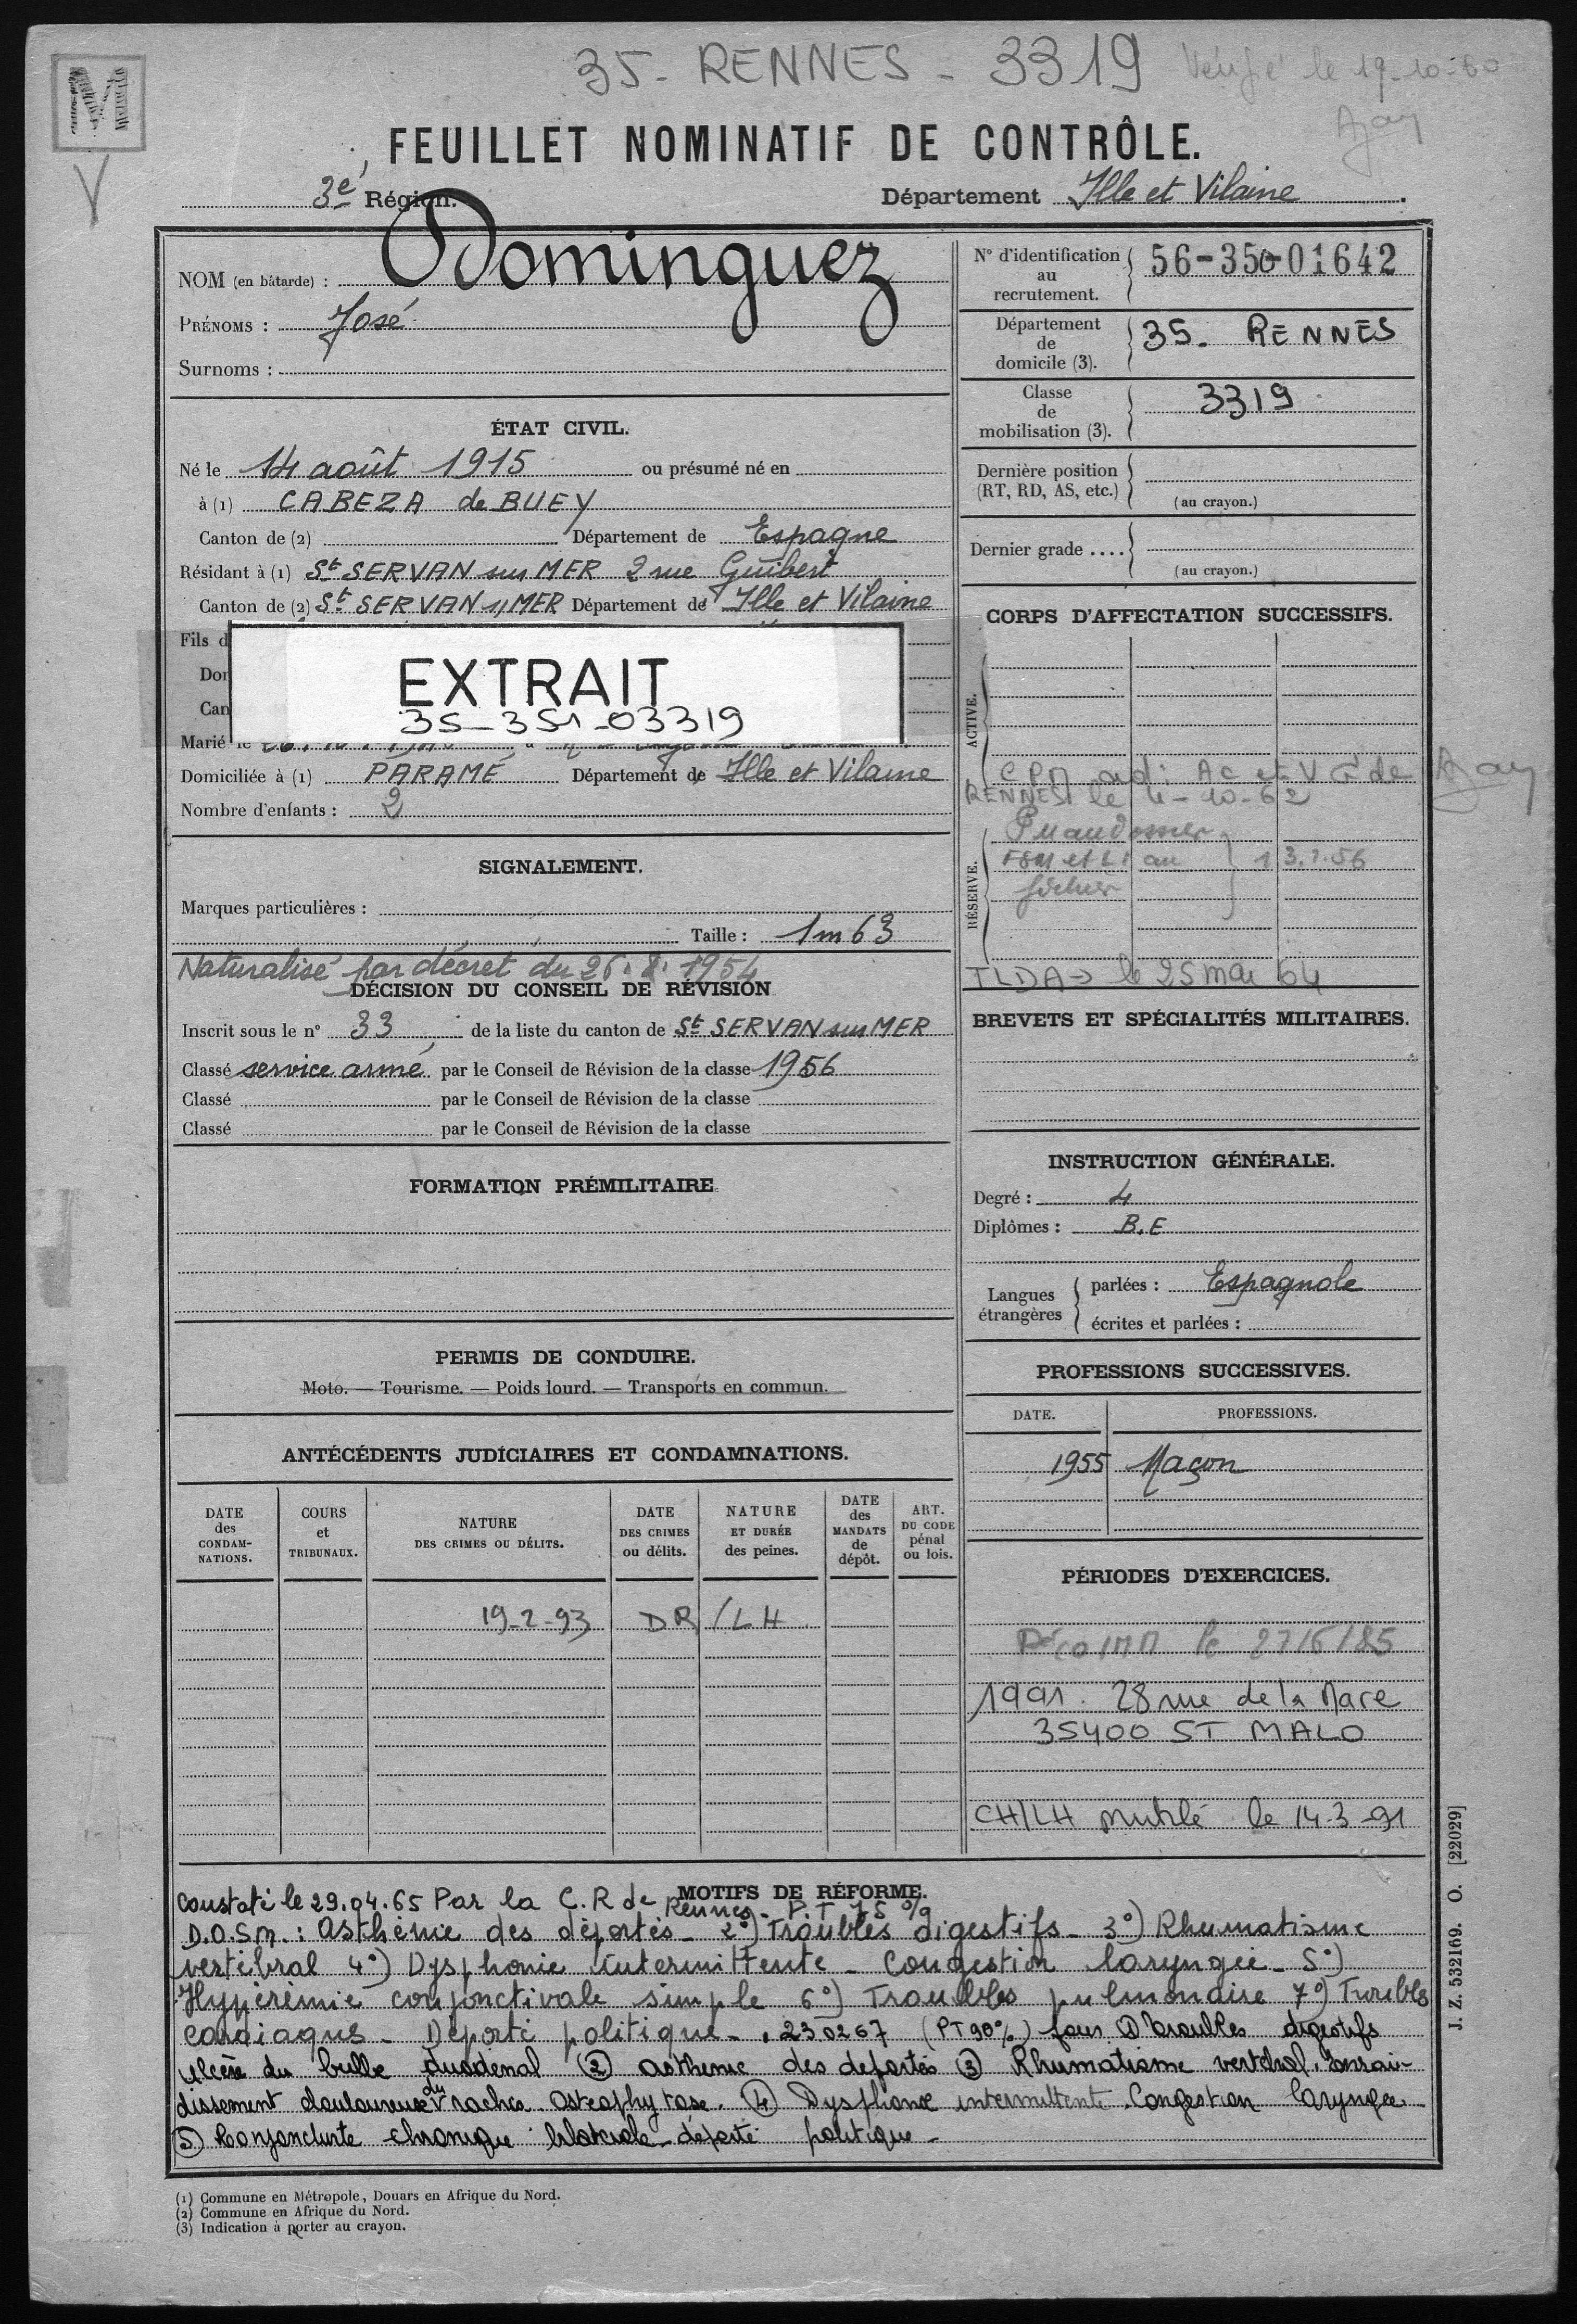 M
V
35 - RENNES - 3319
Vérifié le 19-10-60
FEUILLET NOMINATIF DE CONTRÔLE.
3e Région.
Département Ille et Vilaine
NOM (en bâtarde) : Dominguez
PRÉNOMS : José
Surnoms :
ÉTAT CIVIL.
Né le 14 août 1915 ou présumé né en
à (1) CABEZA de BUEY
Canton de (2) Département de Espagne
Résidant à (1) St SERVAN sur MER 2 rue Guibert
Canton de (2) St SERVAN s/ MER Département de Ille et Vilaine
Fils d
Don
Can
EXTRAIT
35-351-03319
Marié le
Domiciliée à (1) PARAMÉ Département de Ille et Vilaine
Nombre d'enfants : 2
SIGNALEMENT.
Marques particulières :
Taille : 1m63
Naturalisé par décret du 26.8.1954
DÉCISION DU CONSEIL DE RÉVISION
Inscrit sous le n° 33 de la liste du canton de St SERVAN sur MER
Classé service armé par le Conseil de Révision de la classe 1956
Classé par le Conseil de Révision de la classe
Classé par le Conseil de Révision de la classe
FORMATION PRÉMILITAIRE
PERMIS DE CONDUIRE.
Moto. — Tourisme. — Poids lourd. — Transports en commun.
ANTÉCÉDENTS JUDICIAIRES ET CONDAMNATIONS.
DATE des CONDAMNATIONS.
COURS et TRIBUNAUX.
NATURE DES CRIMES OU DÉLITS.
DATE DES CRIMES ou délits.
NATURE ET DURÉE des peines.
DATE des MANDATS de dépôt.
ART. DU CODE pénal ou lois.
19-2-93 DR/LH
N° d'identification au recrutement. 56-350-01642
Département de domicile (3). 35. RENNES
Classe de mobilisation (3). 3319
Dernière position (RT, RD, AS, etc.)
(au crayon.)
Dernier grade ....
(au crayon.)
CORPS D'AFFECTATION SUCCESSIFS.
ACTIVE.
RENNES le 4-10-62
RÉSERVE.
fichier
TLDA → le 25 mai 64
BREVETS ET SPÉCIALITÉS MILITAIRES.
INSTRUCTION GÉNÉRALE.
Degré : 4
Diplômes : B.E
Langues étrangères
parlées : Espagnole
écrites et parlées :
PROFESSIONS SUCCESSIVES.
DATE. PROFESSIONS.
1955 Maçon
PÉRIODES D'EXERCICES.
1991. 28 rue de la Mare
35400 ST MALO
CH/LH mutilé le 14-3-91
MOTIFS DE RÉFORME.
Constaté le 29.04.65 Par la C.R de Rennes - P.T 75 %
D.O.S.M. : Asthénie des déportés - 2°) Troubles digestifs - 3°) Rhumatisme
vertébral 4°) Dysphonie intermittente - Congestion laryngée - 5°)
Hypérémie conjonctivale simple 6°) Troubles pulmonaire 7°) Troubles
cardiaques - Déporté politique - 230267 (PT 90%) pour ① troubles digestifs
ulcère du bulbe duodénal ② asthénie des déportés ③ Rhumatisme vertébral. Enrai-
dissement douloureux du rachis. Ostéophytose. ④ Dysphonie intermittente. Congestion laryngée
⑤ Conjonctivite chronique bilatérale - déporté politique -
(1) Commune en Métropole, Douars en Afrique du Nord.
(2) Commune en Afrique du Nord.
(3) Indication à porter au crayon.
J. Z. 532169. O. [22029]